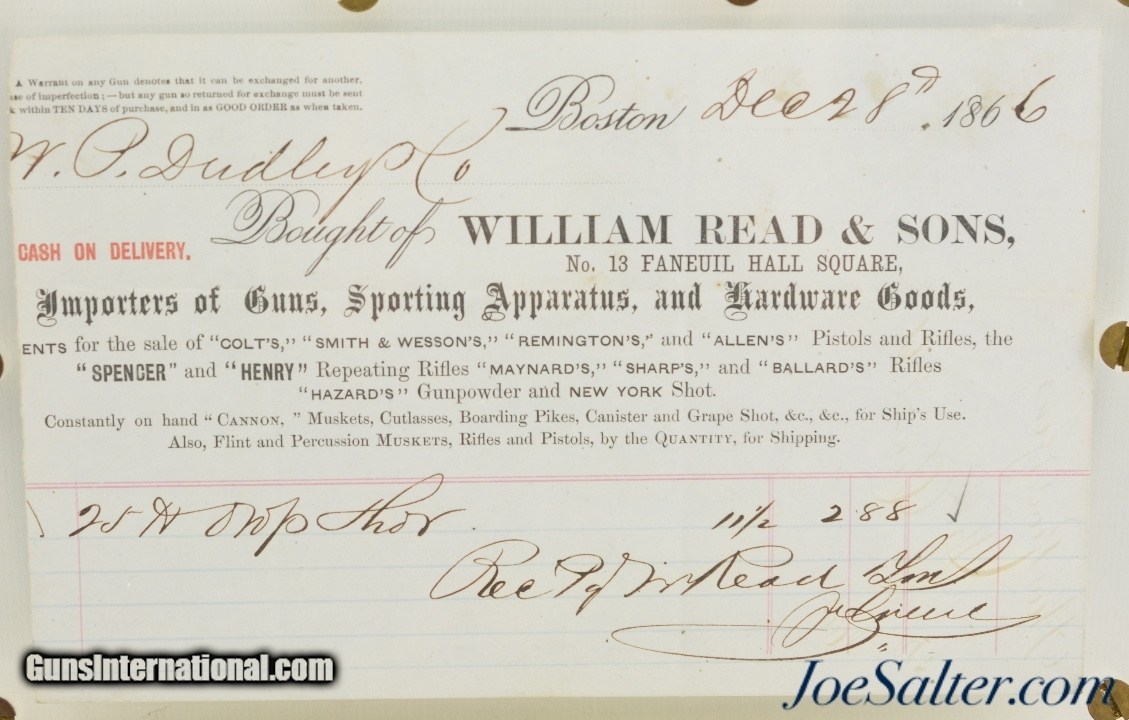 A Warrant on any Gun denotes that it can be exchanged for another,
of imperfection;—but any gun so returned for exchange must be sent
within TEN DAYS of purchase, and in as GOOD ORDER as when taken.
Boston Dec 28 1866
W. P. Dudley & Co
CASH ON DELIVERY.
Bought of WILLIAM READ & SONS,
No. 13 FANEUIL HALL SQUARE,
Importers of Guns, Sporting Apparatus, and Hardware Goods,
ENTS for the sale of "COLT'S," "SMITH & WESSON'S," "REMINGTON'S," and "ALLEN'S" Pistols and Rifles, the
"SPENCER" and "HENRY" Repeating Rifles "MAYNARD'S," "SHARP'S," and "BALLARD'S" Rifles
"HAZARD'S" Gunpowder and NEW YORK Shot.
Constantly on hand "CANNON," Muskets, Cutlasses, Boarding Pikes, Canister and Grape Shot, &c., &c., for Ship's Use.
Also, Flint and Percussion MUSKETS, Rifles and Pistols, by the QUANTITY, for Shipping.
25 # Drop Shot 11 1/2 2 88
Rec Py Wm Read & Sons
GunsInternational.com
JoeSalter.com